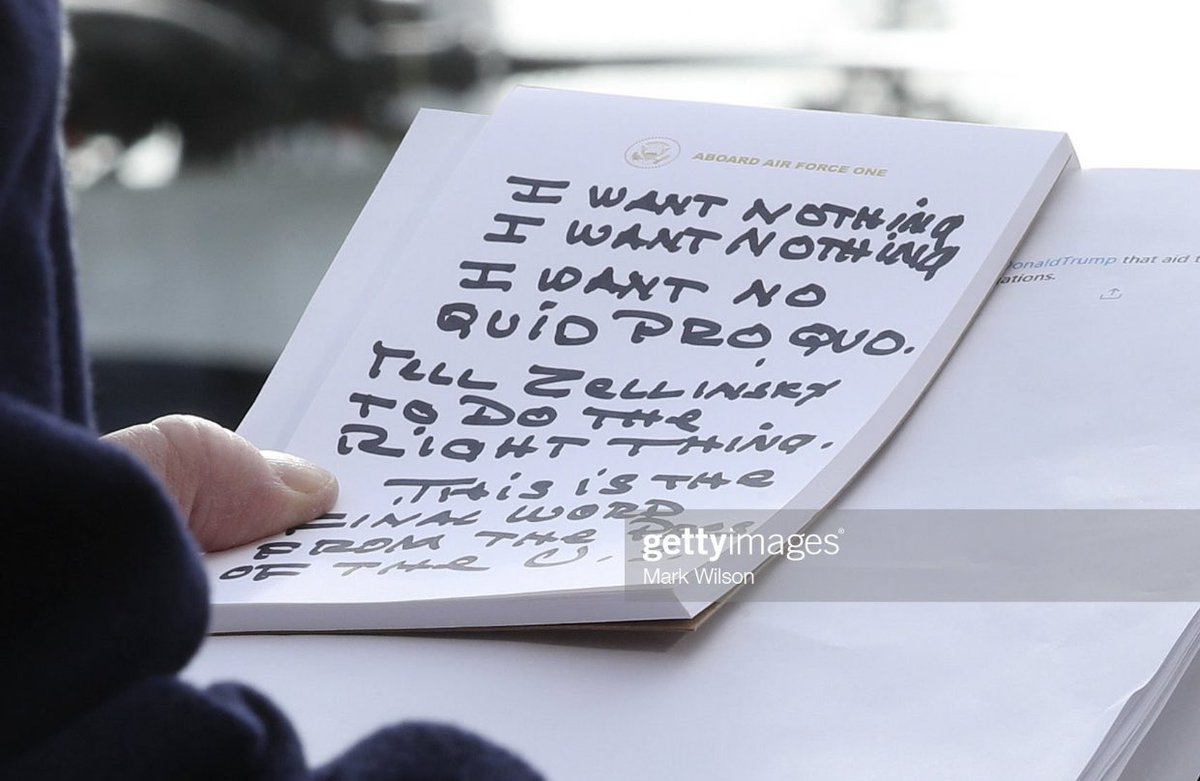 ABOARD AIR FORCE ONE
I WANT NOTHING
I WANT NOTHING
I WANT NO
QUID PRO QUO.
TELL ZELLINSKY
TO DO THE
RIGHT THING.
THIS IS THE
FINAL WORD
FROM THE PRES
OF THE U.S.
DonaldTrump that aid t
ations.
gettyimages®
Mark Wilson